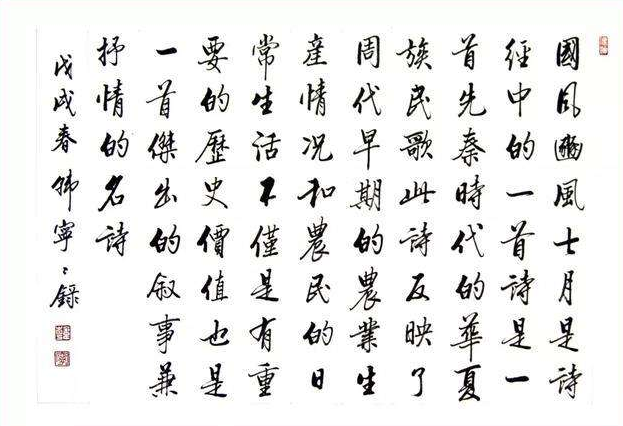 國风豳風七月是詩
經中的一首詩是一
首先秦時代的華夏
族民歌此詩反映了
周代早期的農業生
產情况和農民的日
常生活不僅是有重
要的歷史價值也是
一首傑出的叙事兼
抒情的名詩
戊戌春韩寧〻錄